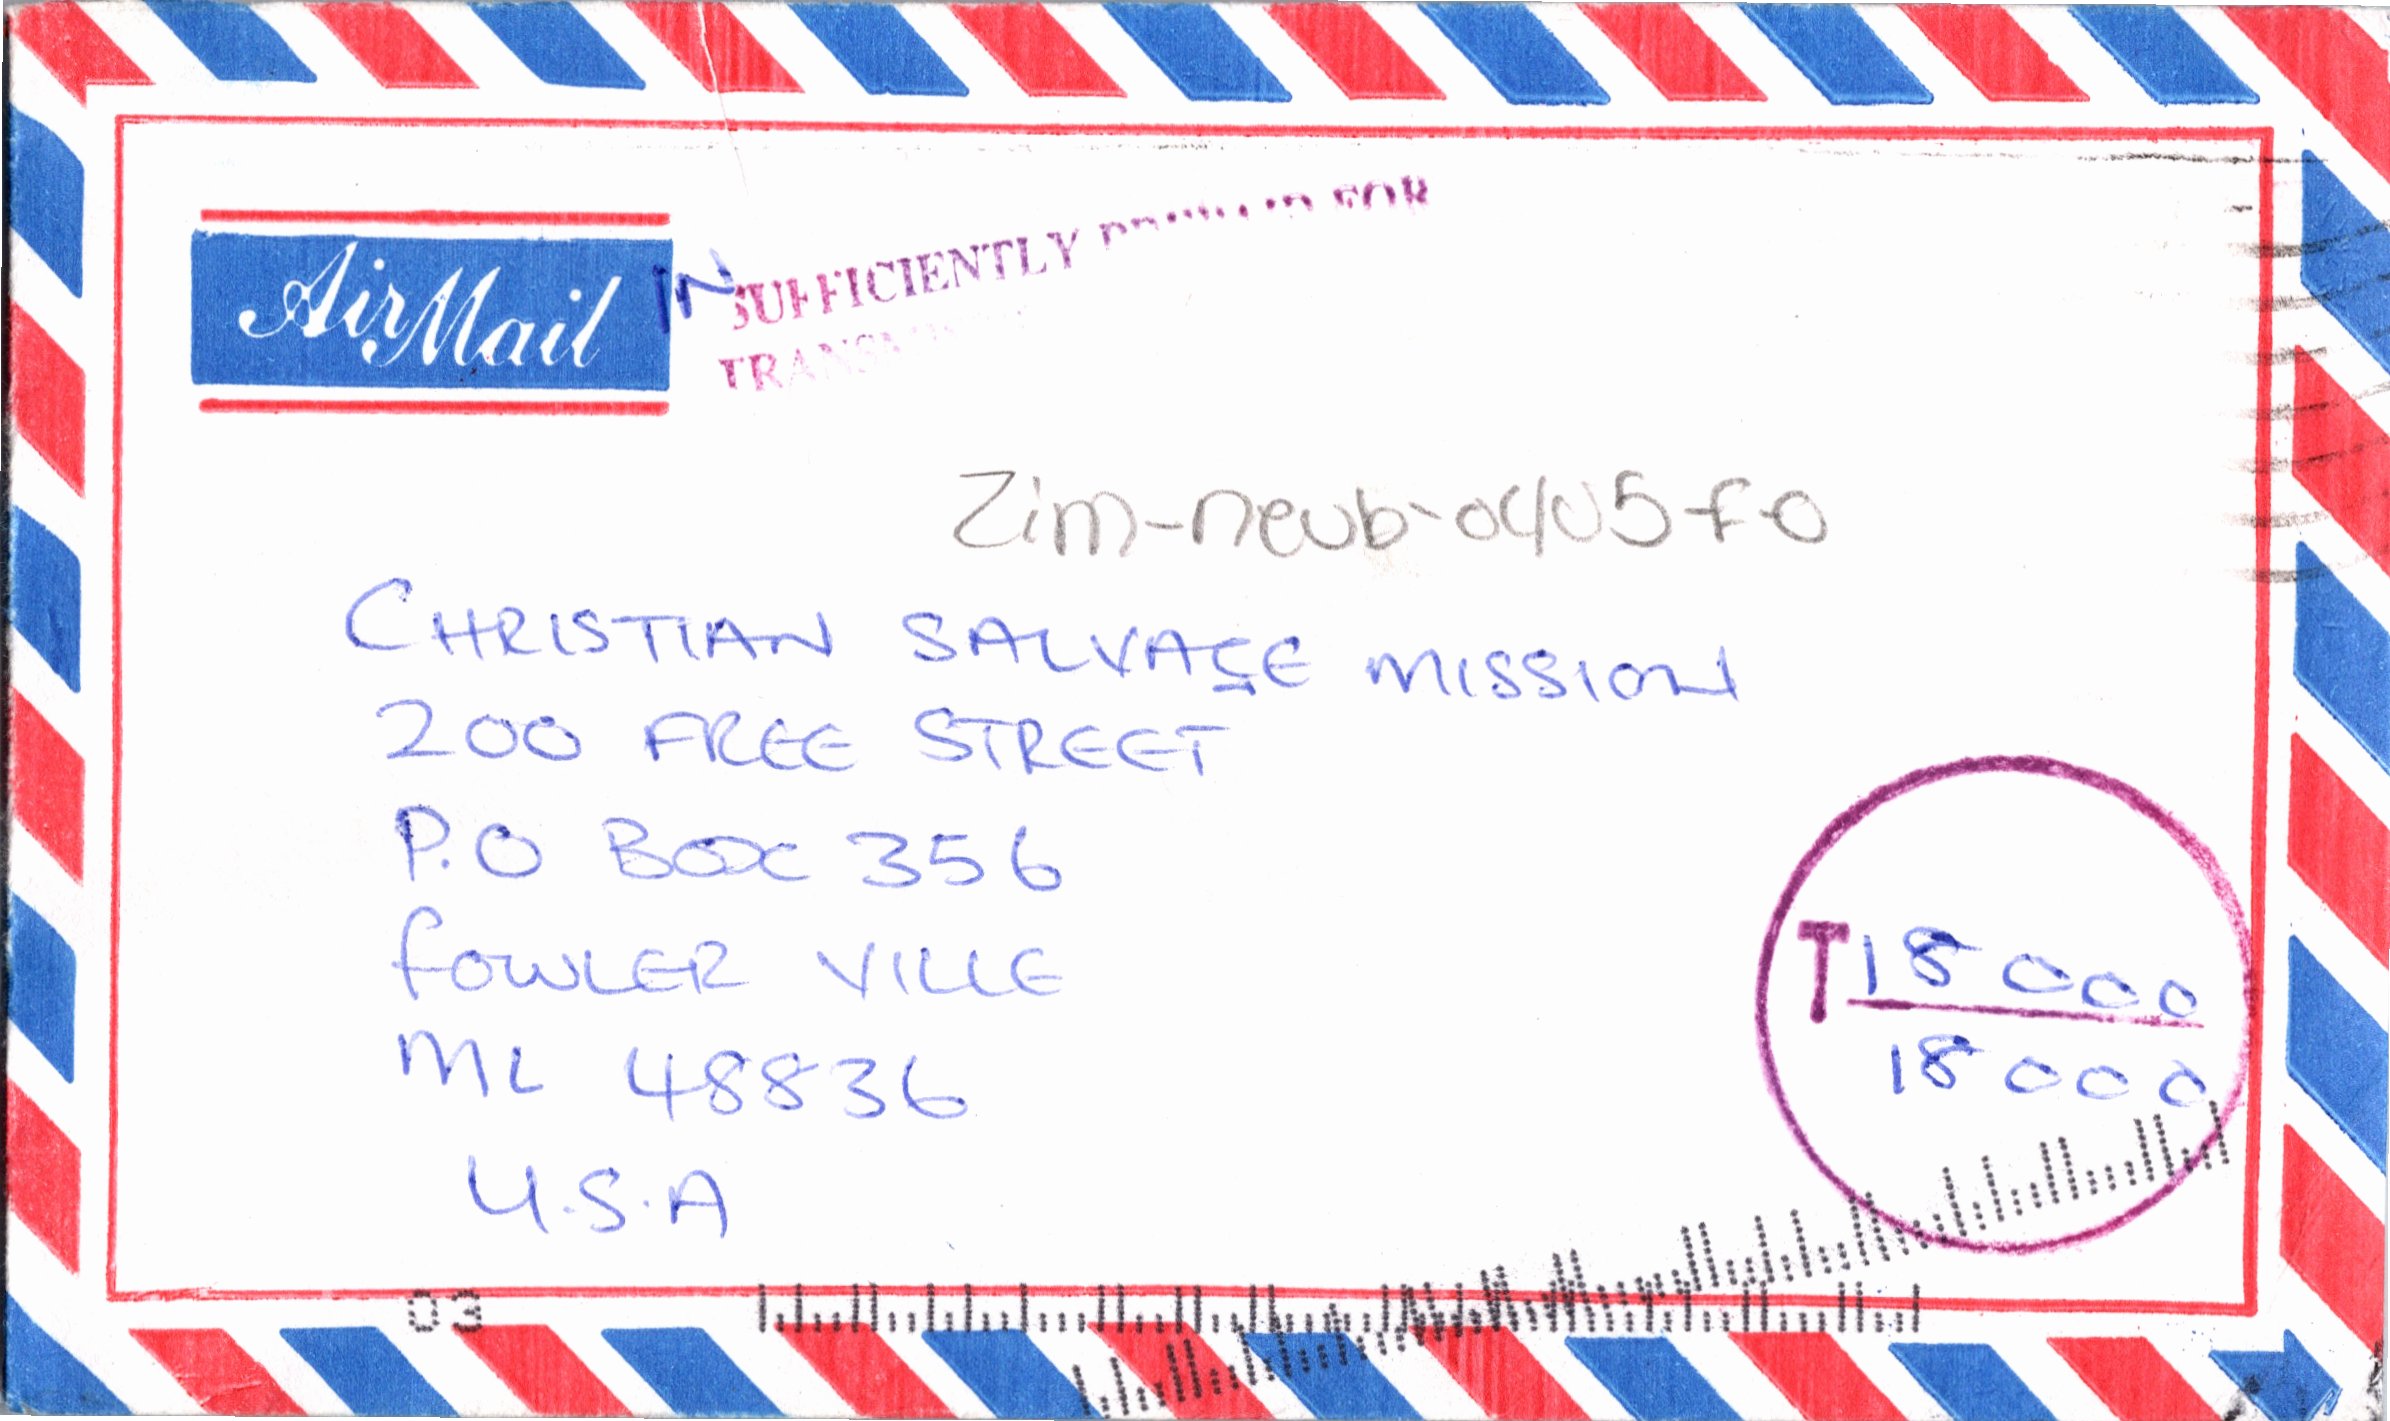 Air Mail
INSUFFICIENTLY PREPAID FOR
TRANSM
Zim-neub-0405-f-0
CHRISTIAN SALVAGE MISSION
200 FREE STREET
P.O BOX 356
FOWLER VILLE
MI 48836
U.S.A
T 18000
18000
03